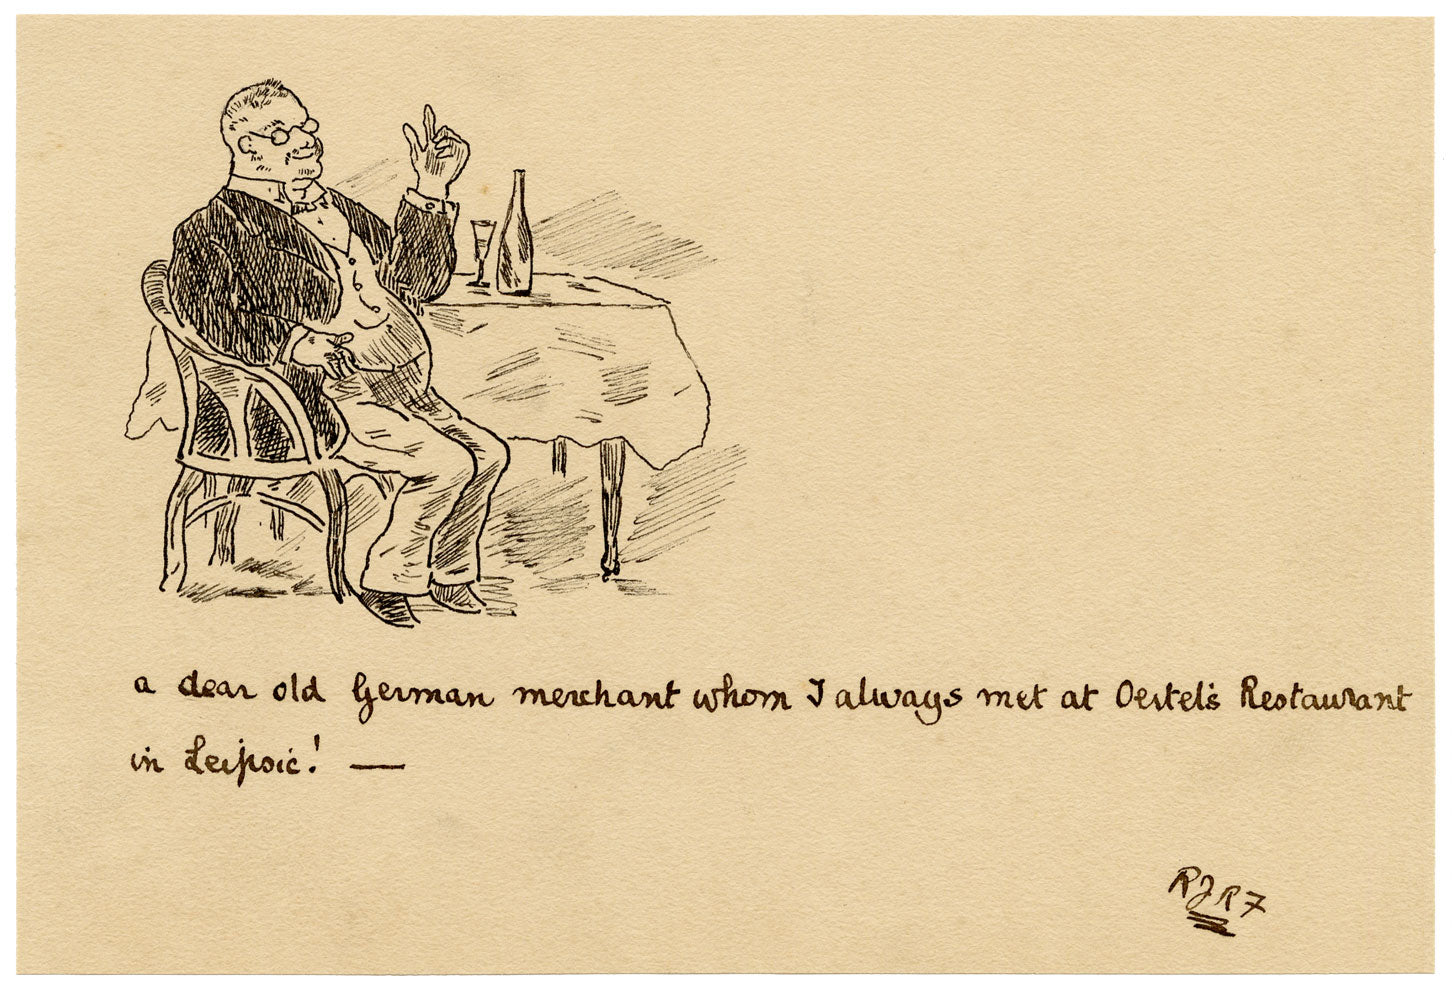 a dear old German merchant whom I always met at Oertel's Restaurant
in Leipsic! —
RJR7